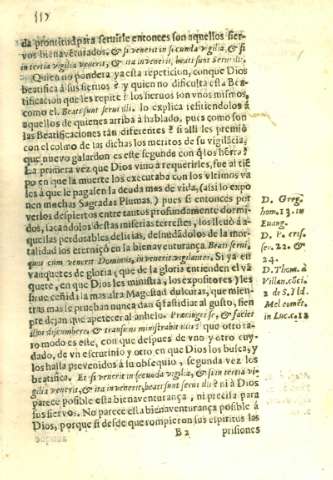 da prontitud para seruirle entonces son aquellos sier-
vos bienaventurados. & si venerit in secunda vigilia, & si
in tertia vigilia venerit, & ita invenerit, beati sunt servi illi.
Quien no pondera ya esta repeticion, conque Dios
beatifica à sus siervos? y quien no dificulta esta Bea-
tificacion que les repite? los siervos son vnos mismos,
como el. Beati sunt servi illi. lo explica refitiendolos à
aquellos de quienes arriba à hablado, pues como son
las Beatificaciones tán diferentes? si alli les premiò
con el colmo de las dichas los meritos de su vigilãcia,
que nuevo galardon es este segundo con q̃ los hõrra?
La primera vez que Dios vino à requerirles, fue al tiẽ-
po en que la muerte los executaba con los vltimos va
les à que le pagasen la deuda mas de vida, (assi lo expo
nen mechas Sagradas Plumas.) pues si entonces por
verlos despiertos entre tantos profundamente dormi-
dos, sacandolos destas miserias terrestes, los leuò à a-
quellas perdurables delicias, desnudãdolos de la mor-
talidad los eternizò en la bienaventurança. Beati servi,
quos cùm venerit Dominus, invenerit vigilantes. Si ya en
vanquetes de gloria, que de gloria entienden el vã
quete, en que Dios les ministra, los expositores) les
brue ceñida la mas alta Magestad dulçuras, que mien-
tras mas se prueban nunca dan q̃ fastidiar al gusto, sien
pre dejan que apetecer al anhelo. Præcinget se, & faciet
illos discumbere, & transiens ministrabit illis? que otro ta-
ro modo es este, con que despues de vno y otro cuy-
dado, de vn escrutinio y otro en que Dios los busca, y
los halla prevenidos à su obsequio, segunda vez les
beatifica. Et si venerit in secunda vigilia, & si in tertia vi-
gilia venerit, & ita invenerit, beati sunt servi illi? ni à Dios
parece posible esta bienaventurança, ni precisa para
sus siervos. No parece esta bienaventurança posible à
Dios, porque si desde que rompieron sus espiritus las
B 2 prisiones
D. Greg.
hom. 13. in
Euang.
D. Pe. Crisf.
ser. 22. &
24.
D. Thom. à
Villan. cõci.
2 de S. Ild.
in Luc. c. 12